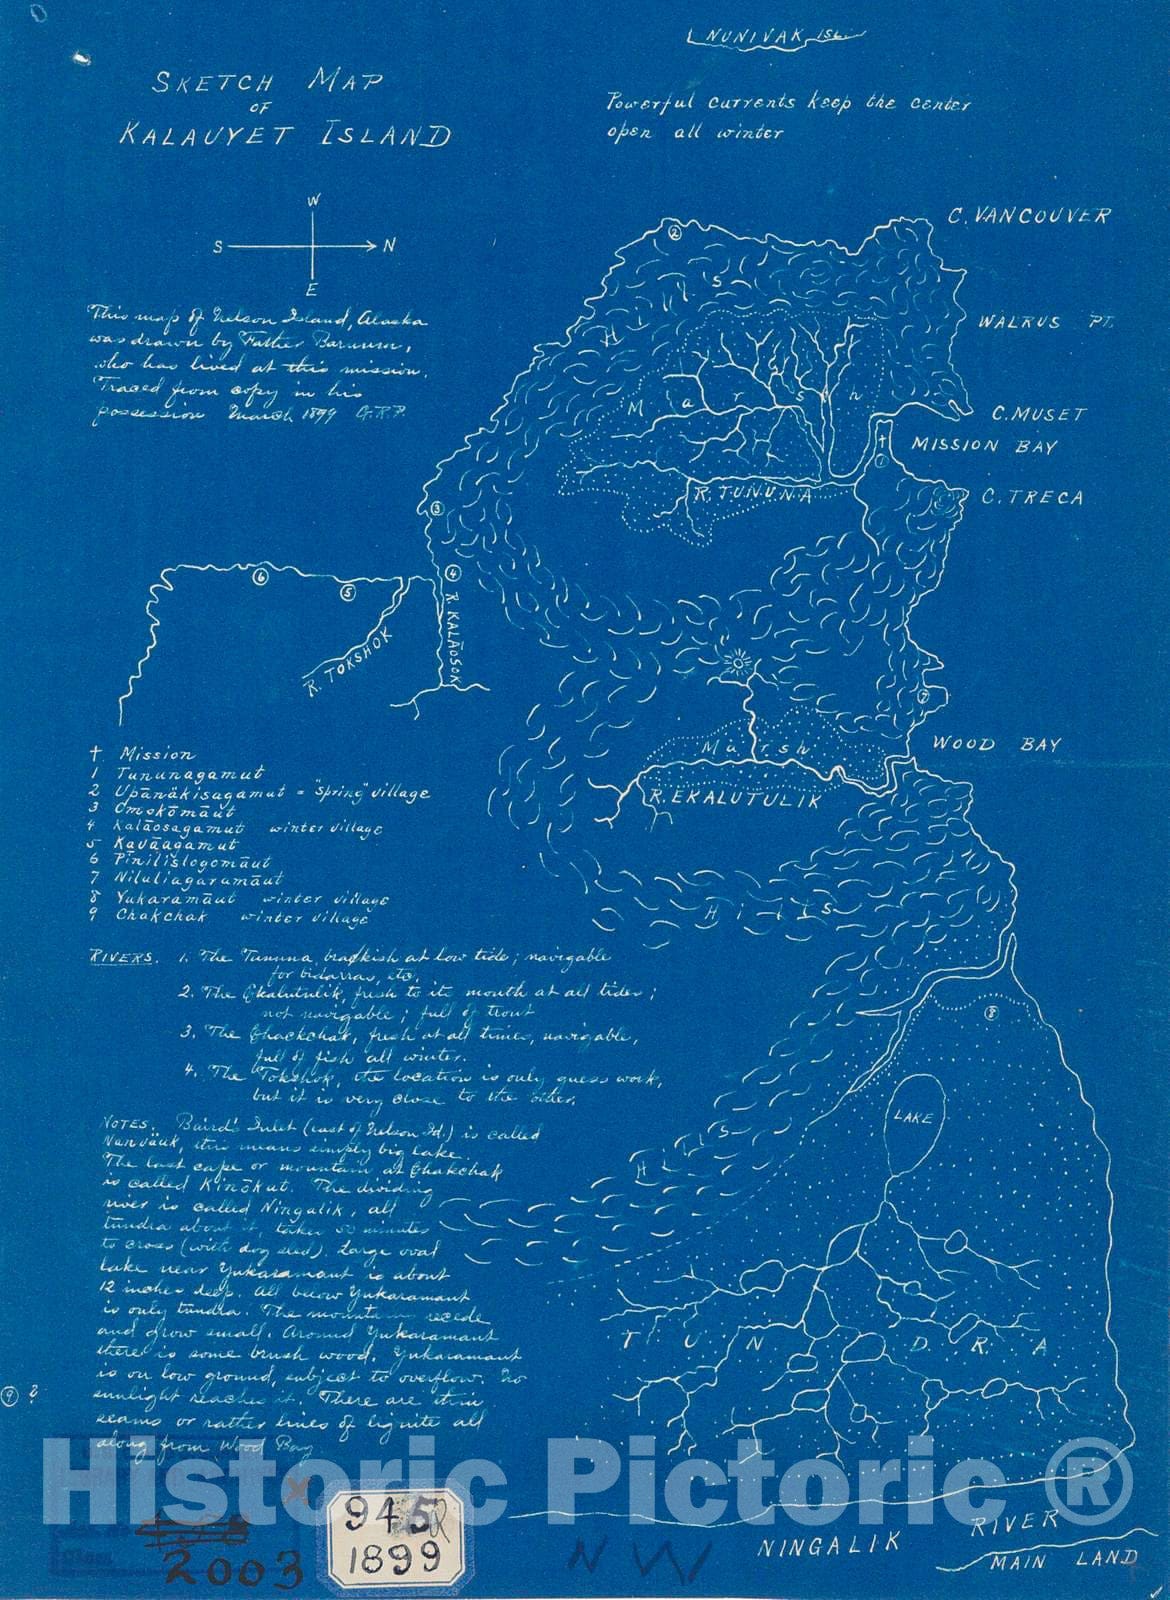 L NUNIVAK ISL.
SKETCH MAP
OF
KALAUYET ISLAND
Powerful currents keep the center
open all winter
W
S N
E
This map of Nelson Island, Alaska
was drawn by Father Barnum,
who has lived at this mission.
Traced from copy in his
possession March 1899 G.R.P.
C. VANCOUVER
WALRUS PT.
C. MUSET
MISSION BAY
C. TRECA
WOOD BAY
2
Hills
Marsh
1
R. TUNUNA
3
4
6
5
R. KALĀOSOK
R. TOKSHOK
7
Marsh
R. EKALUTULIK
Hills
8
LAKE
Hills
TUNDRA
† Mission
1 Tununagamut
2 Upānäkisagamut = "Spring" village
3 Omokōmāut
4 Kalāosagamut winter village
5 Kavāagamut
6 Pinilislogomāut
7 Niluliagaramāut
8 Yukaramāut winter village
9 Chakchak winter village
RIVERS. 1. The Tununa, brackish at low tide; navigable
for bidarras, etc.
2. The Ekalutulik, fresh to its mouth at all tides;
not navigable; full of trout
3. The Chackchak, fresh at all times, navigable,
full of fish all winter.
4. The Tokshok, the location is only guess work,
but it is very close to the other.
NOTES. Baird's Inlet (east of Nelson Id.) is called
Nanväuk, this means simply big lake.
The last cape or mountain at Chakchak
is called Kinōkut. The dividing
river is called Ningalik, all
tundra about it, takes 50 minutes
to cross (with dog sled). Large oval
lake near Yukaramaut is about
12 inches deep. All below Yukaramaut
is only tundra. The mountains recede
and grow small. Around Yukaramaut
there is some brush wood. Yukaramaut
is on low ground, subject to overflow. No
sunlight reaches it. There are thin
seams or rather lines of lignite all
along from Wood Bay
9 ?
Historic Pictoric ®
945
1899
2003
NW
NINGALIK RIVER
MAIN LAND